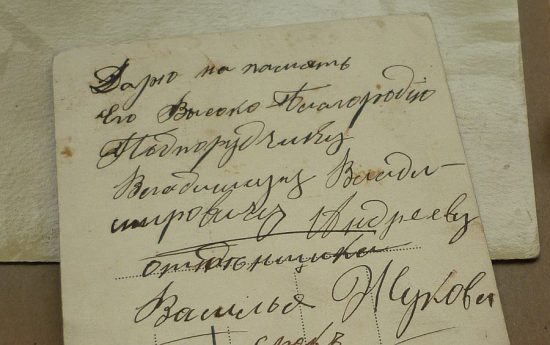 Дарю на память
Его Высоко Благородію
Подпоручику
Владимиру Влади-
мировичу Андрееву
отъ денщика
Василья Жукова